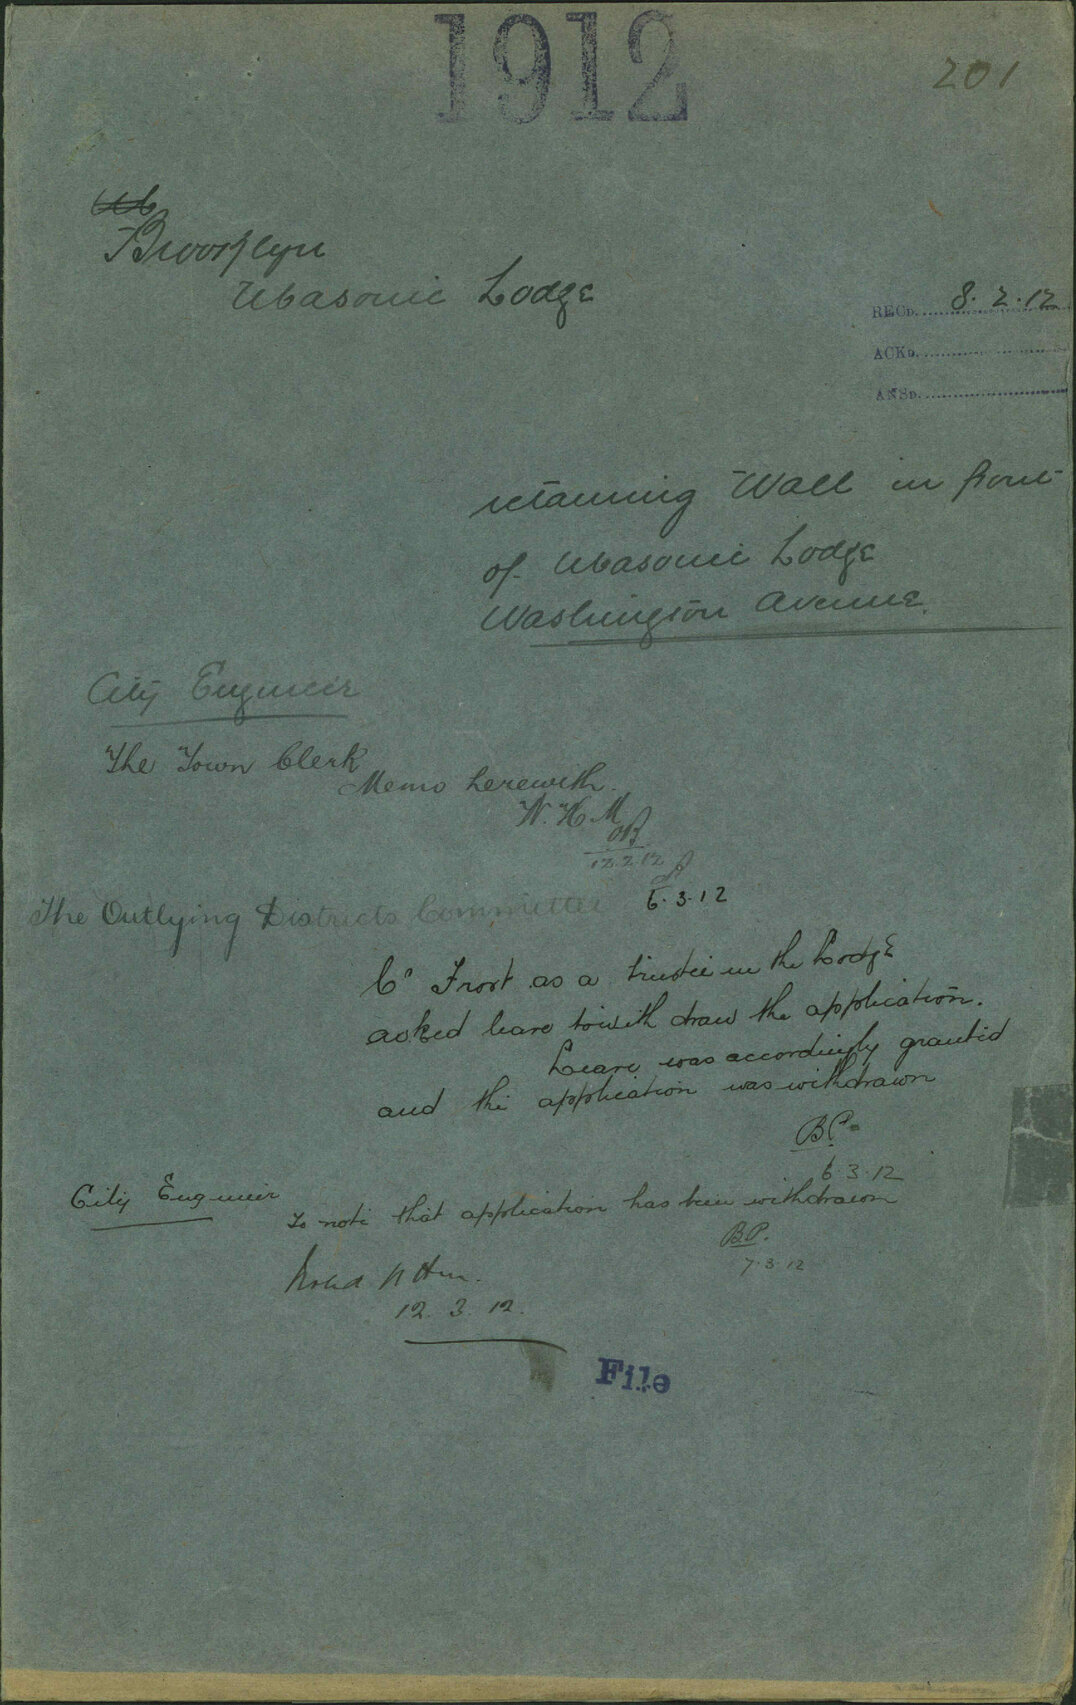 1912
201
Brooklyn
Masonic Lodge
RECD. 8.2.12
ACKD.
ANSD.
retaining Wall in front
of Masonic Lodge
Washington Avenue.
City Engineer
The Town Clerk
Memo herewith.
W.H.M
12.2.12
The Outlying Districts Committee 6.3.12
Cr Frost as a trustee in the Lodge
asked leave to withdraw the application.
Leave was accordingly granted
and the application was withdrawn
BP.
6.3.12
City Engineer
To note that application has been withdrawn
B.P.
7.3.12
Noted
12.3.12.
File